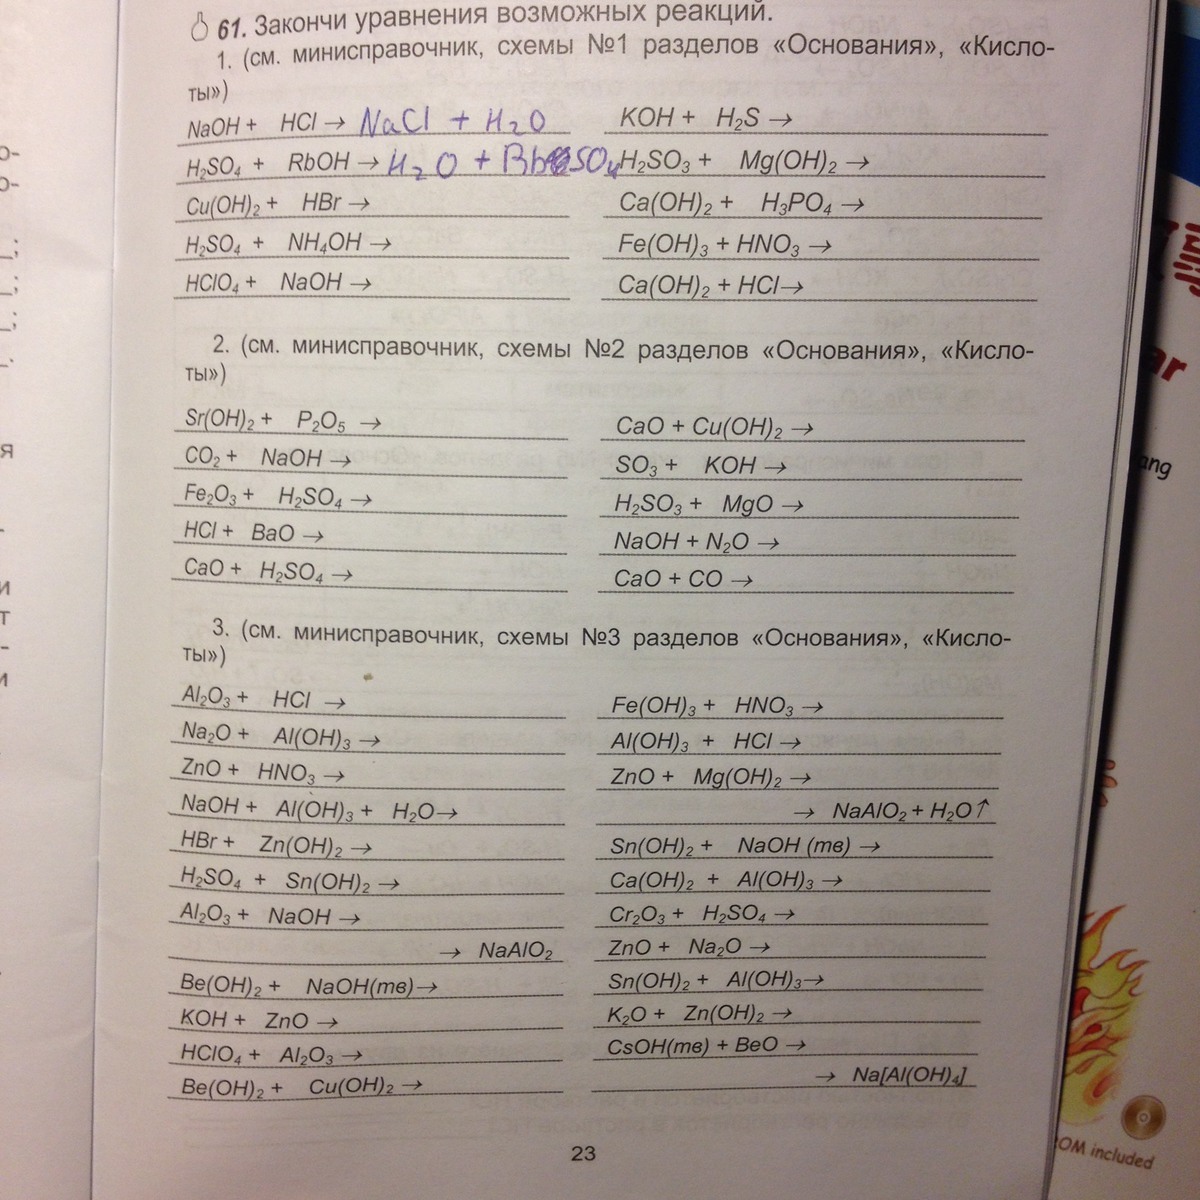 61. Закончи уравнения возможных реакций.
1. (см. минисправочник, схемы №1 разделов «Основания», «Кисло-
ты»)
NaOH + HCl → NaCl + H₂O
KOH + H₂S →
H₂SO₄ + RbOH → H₂O + RbSO₄
H₂SO₃ + Mg(OH)₂ →
Cu(OH)₂ + HBr →
Ca(OH)₂ + H₃PO₄ →
H₂SO₄ + NH₄OH →
Fe(OH)₃ + HNO₃ →
HClO₄ + NaOH →
Ca(OH)₂ + HCl→
2. (см. минисправочник, схемы №2 разделов «Основания», «Кисло-
ты»)
Sr(OH)₂ + P₂O₅ →
CaO + Cu(OH)₂ →
CO₂ + NaOH →
SO₃ + KOH →
Fe₂O₃ + H₂SO₄ →
H₂SO₃ + MgO →
HCl + BaO →
NaOH + N₂O →
CaO + H₂SO₄ →
CaO + CO →
3. (см. минисправочник, схемы №3 разделов «Основания», «Кисло-
ты»)
Al₂O₃ + HCl →
Fe(OH)₃ + HNO₃ →
Na₂O + Al(OH)₃ →
Al(OH)₃ + HCl →
ZnO + HNO₃ →
ZnO + Mg(OH)₂ →
NaOH + Al(OH)₃ + H₂O→
→ NaAlO₂ + H₂O↑
HBr + Zn(OH)₂ →
Sn(OH)₂ + NaOH (тв) →
H₂SO₄ + Sn(OH)₂ →
Ca(OH)₂ + Al(OH)₃ →
Al₂O₃ + NaOH →
Cr₂O₃ + H₂SO₄ →
→ NaAlO₂
ZnO + Na₂O →
Be(OH)₂ + NaOH(тв)→
Sn(OH)₂ + Al(OH)₃→
KOH + ZnO →
K₂O + Zn(OH)₂ →
HClO₄ + Al₂O₃ →
CsOH(тв) + BeO →
Be(OH)₂ + Cu(OH)₂ →
→ Na[Al(OH)₄]
23
ar
ang
OM included